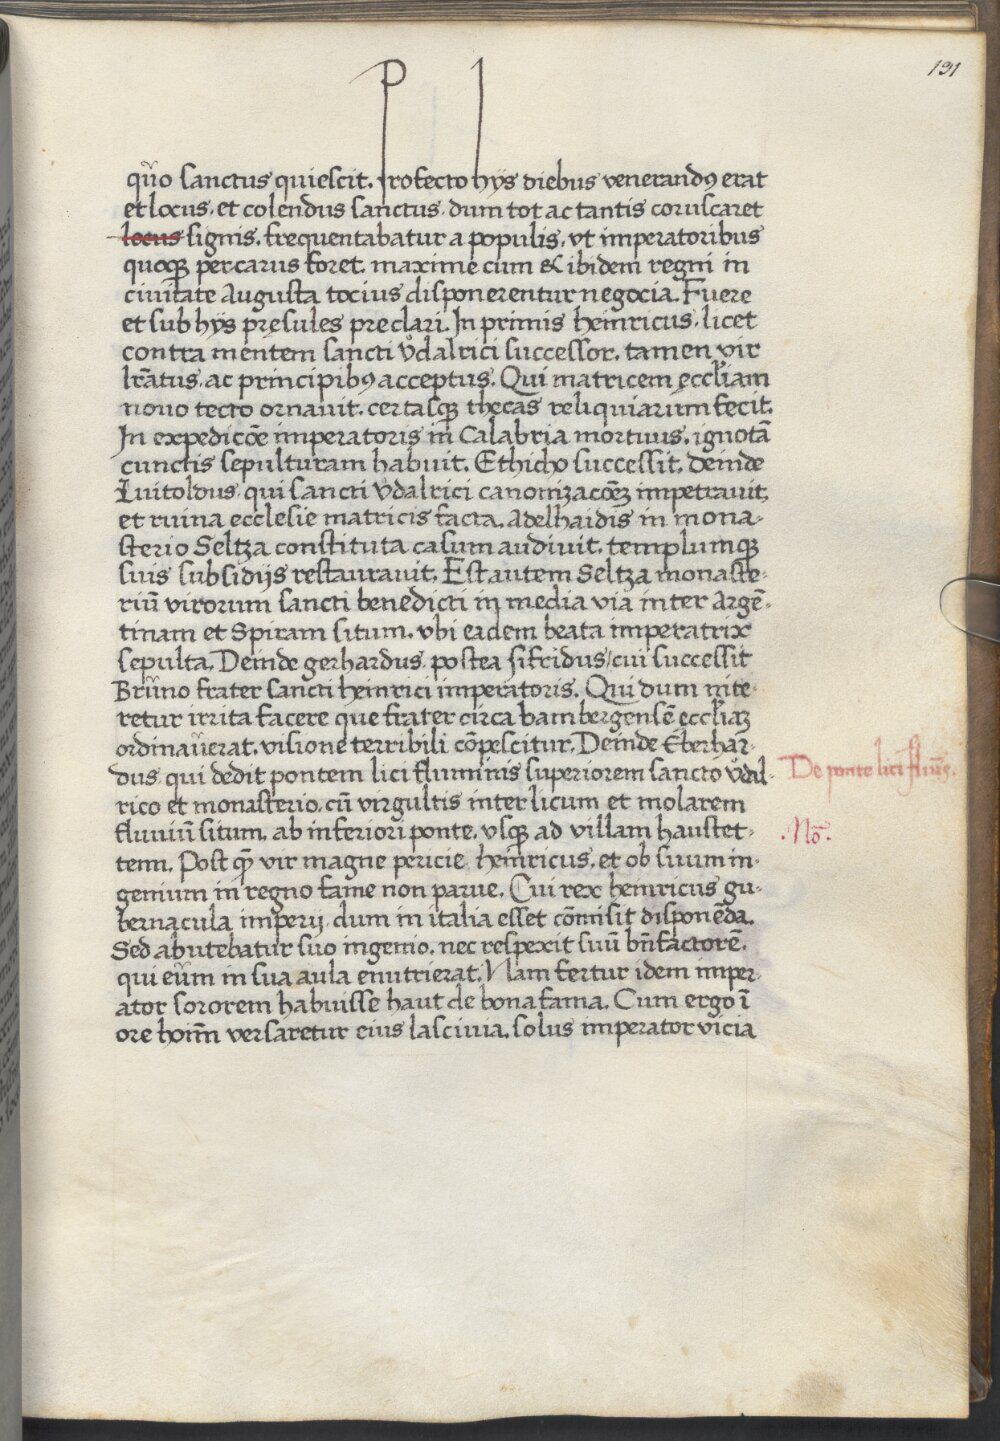 191
quo sanctus quiescit. Profecto hÿs diebus venerandꝰ erat
et locus, et colendus sanctus, dum tot ac tantis coruscaret
locus signis, frequentabatur a populis, vt imperatoribus
quoqꝫ percarus foret. maxime cum & ibidem regni in
ciuitate Augusta tocius disponerentur negocia. Fuere
et sub hÿs presules preclari. In primis heinricus, licet
contra mentem sancti vͦdalrici successor, tamen vir
lr̄atus, ac principibꝰ acceptus. Qui matricem eccl̄iam
nouo tecto ornauit, certasqꝫ thecas reliquiarum fecit.
In expedicōe imperatoris in Calabria mortuus, ignotā
cunctis sepulturam habuit. Ethicho successit. deinde
Luitoldus, qui sancti vdalrici canonizacōeꝫ impetrauit,
et ruina ecclesie matricis facta, Adelhaidis in mona-
sterio Seltza constituta casum audiuit, templumqꝫ
suis subsidijs restaurauit. Est autem Seltza monaste-
riū virorum sancti benedicti in media via inter Argē-
tinam et Spiram situm, vbi eadem beata imperatrix
sepulta. Deinde gerhardus, postea sifridus, cui successit
Bruno frater sancti heinrici imperatoris. Qui dum nite-
retur irrita facere que frater circa bambergensē eccl̄iaꝫ
ordinauerat, visione terribili cōpescitur. Deinde Eberhar-
dus qui dedit pontem lici fluminis superiorem sancto vͦdal-
rico et monasterio, cū virgultis inter licum et molarem
fluuiū situm, ab inferiori ponte, vsqꝫ ad villam haustet-
tenn. Post qꝫ vir magne pericie heinricus, et ob suum in-
genium in regno fame non parue. Cui rex heinricus gu-
bernacula imperij dum in italia esset cōmisit disponēda.
Sed abutebatur suo ingenio, nec respexit suū bn̄factorē,
qui eum in sua aula enutrierat. Nam fertur idem imper-
ator sororem habuisse haut de bona fama. Cum ergo ī
ore hoīm versaretur eius lasciuia, solus imperator vicia
De ponte lici flum̄s.
.No̅.